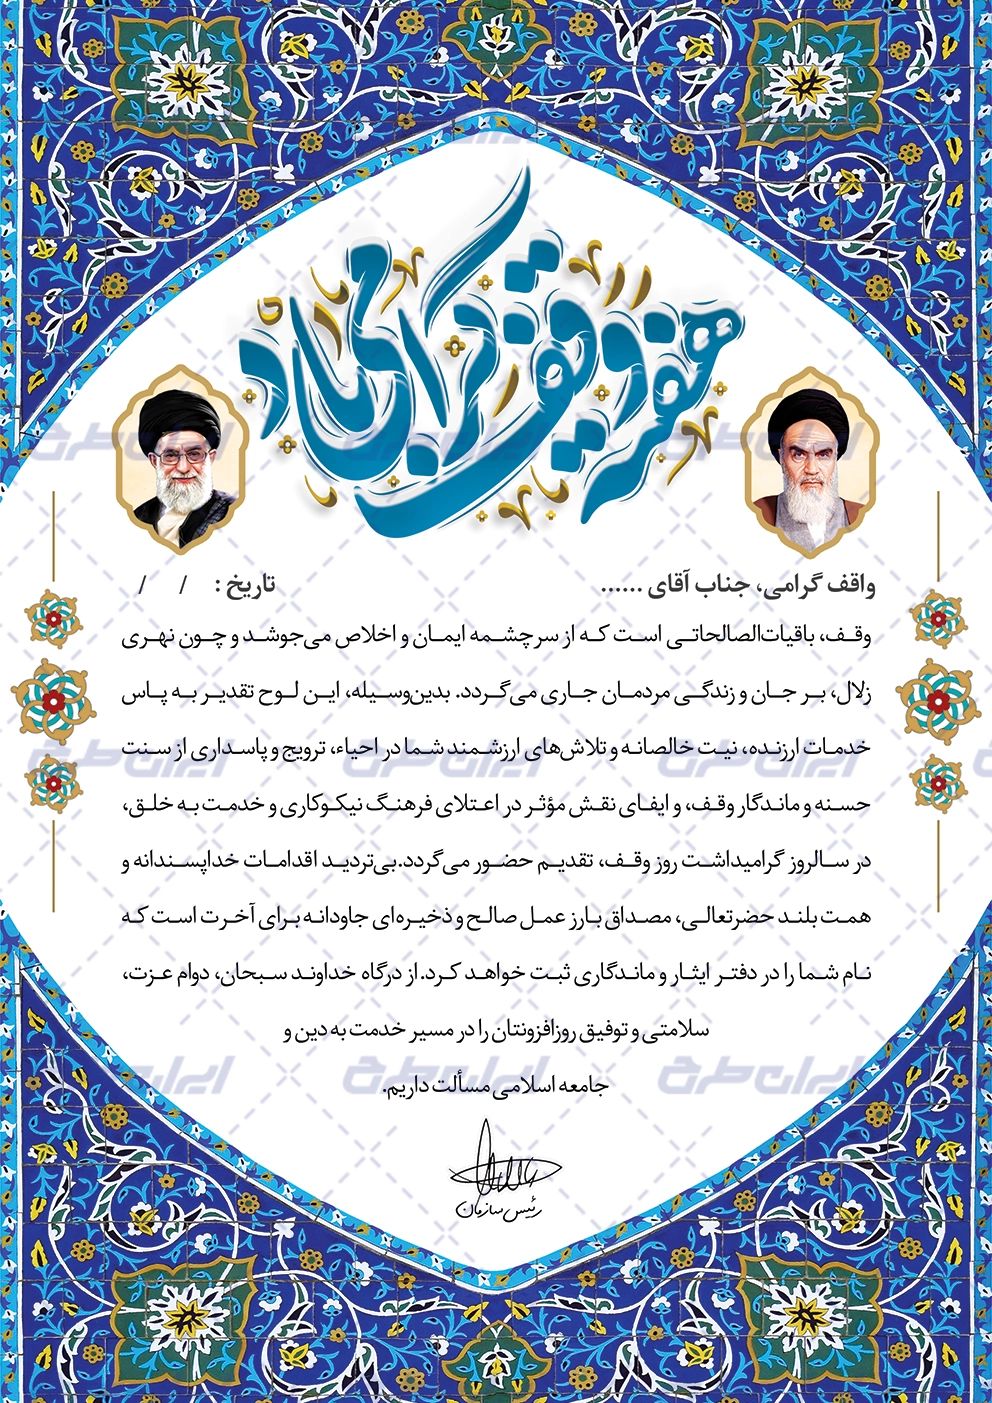 هفته وقف گرامی باد
واقف گرامی، جناب آقای ......
تاریخ : / /
وقف، باقیات‌الصالحاتی است که از سرچشمه ایمان و اخلاص می‌جوشد و چون نهری
زلال، بر جان و زندگی مردمان جاری می‌گردد. بدین‌وسیله، این لوح تقدیر به پاس
خدمات ارزنده، نیت خالصانه و تلاش‌های ارزشمند شما در احیاء، ترویج و پاسداری از سنت
حسنه و ماندگار وقف، و ایفای نقش مؤثر در اعتلای فرهنگ نیکوکاری و خدمت به خلق،
در سالروز گرامیداشت روز وقف، تقدیم حضور می‌گردد.بی‌تردید اقدامات خداپسندانه و
همت بلند حضرتعالی، مصداق بارز عمل صالح و ذخیره‌ای جاودانه برای آخرت است که
نام شما را در دفتر ایثار و ماندگاری ثبت خواهد کرد. از درگاه خداوند سبحان، دوام عزت،
سلامتی و توفیق روزافزونتان را در مسیر خدمت به دین و
جامعه اسلامی مسألت داریم.
رئیس سازمان
ایران طرح